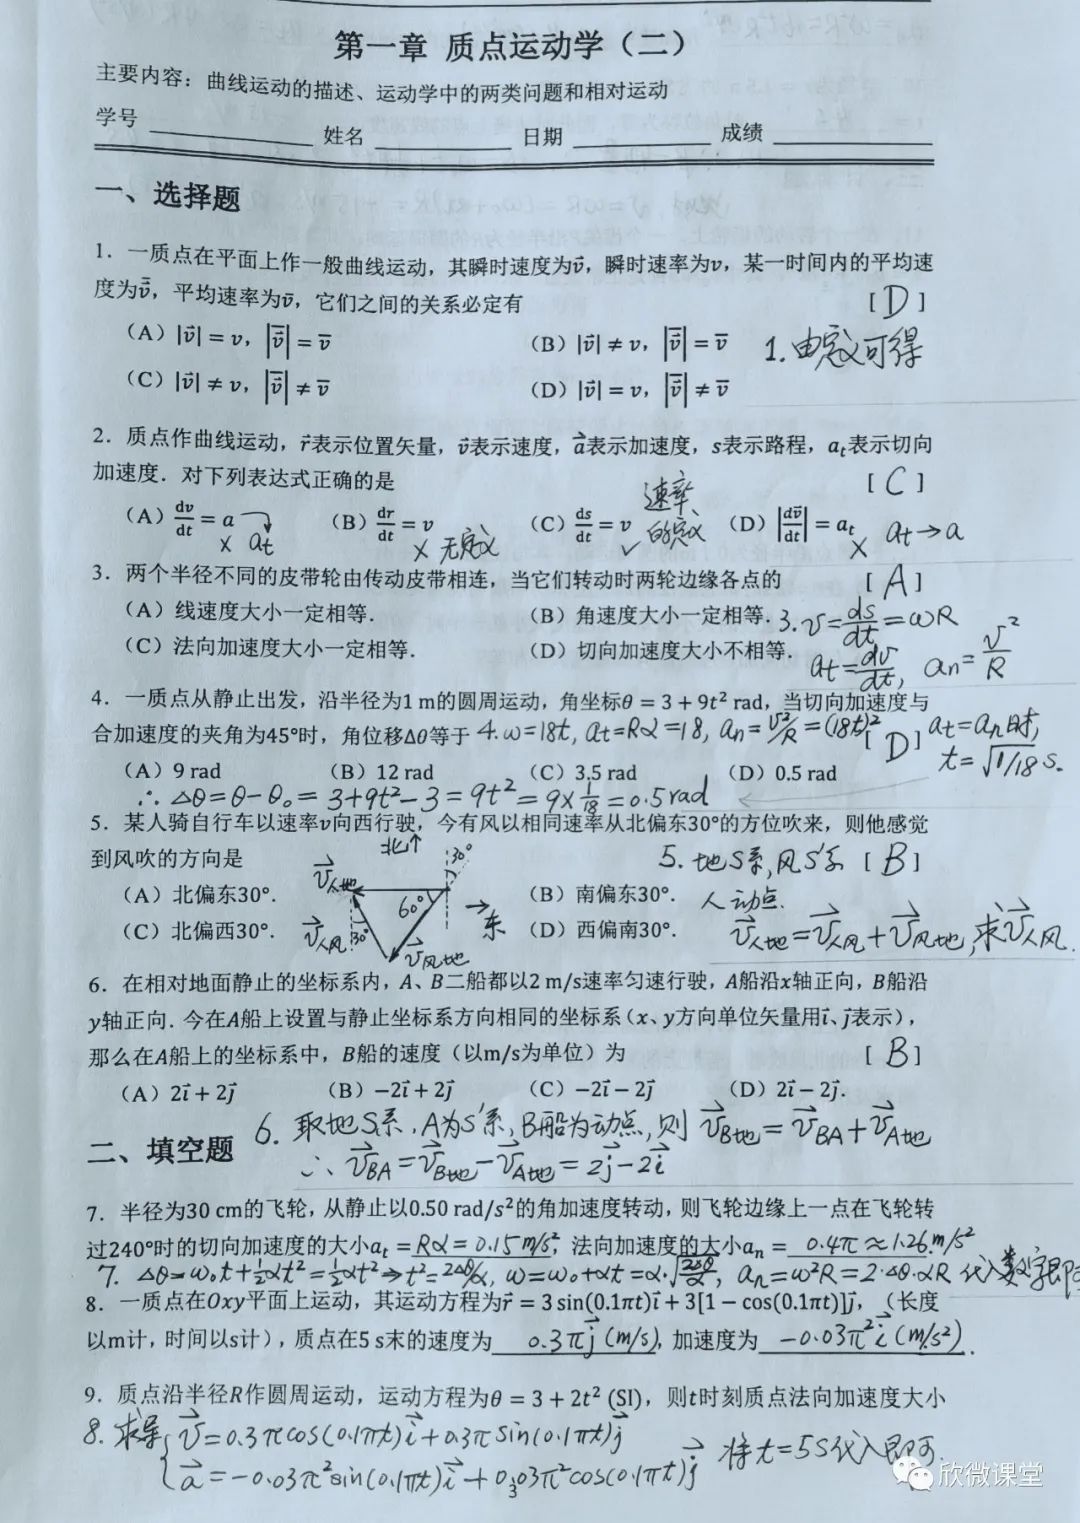 第一章 质点运动学（二）
主要内容：曲线运动的描述、运动学中的两类问题和相对运动
学号 姓名 日期 成绩
一、选择题
1．一质点在平面上作一般曲线运动，其瞬时速度为v⃗，瞬时速率为v，某一时间内的平均速
度为v̄⃗，平均速率为v̄，它们之间的关系必定有 [ D ]
（A）|v⃗| = v，|v̄⃗| = v̄ （B）|v⃗| ≠ v，|v̄⃗| = v̄ 1.由定义可得
（C）|v⃗| ≠ v，|v̄⃗| ≠ v̄ （D）|v⃗| = v，|v̄⃗| ≠ v̄
2．质点作曲线运动，r⃗表示位置矢量，v⃗表示速度，a⃗表示加速度，s表示路程，aₜ表示切向
加速度．对下列表达式正确的是 [ C ]
（A）dv/dt = a （B）dr/dt = v （C）ds/dt = v （D）|dv⃗/dt| = aₜ
× at × 无定义 ✓ 速率的定义 × at→a
3．两个半径不同的皮带轮由传动皮带相连，当它们转动时两轮边缘各点的 [ A ]
（A）线速度大小一定相等． （B）角速度大小一定相等． 3. v=ds/dt=ωR
（C）法向加速度大小一定相等． （D）切向加速度大小不相等． at=dv/dt, an=v²/R
4．一质点从静止出发，沿半径为1 m的圆周运动，角坐标θ = 3 + 9t² rad，当切向加速度与
合加速度的夹角为45°时，角位移Δθ等于 [ D ]
4.ω=18t, at=Rα=18, an=v²/R=(18t)² at=an时,
t=√1/18 s.
（A）9 rad （B）12 rad （C）3.5 rad （D）0.5 rad
∴ Δθ=θ-θ₀=3+9t²-3=9t²=9×1/18=0.5rad
5．某人骑自行车以速率v向西行驶，今有风以相同速率从北偏东30°的方位吹来，则他感觉
到风吹的方向是 [ B ]
北↑ 30° 5. 地S系,风S'系
（A）北偏东30°． （B）南偏东30°． 人动点.
（C）北偏西30°． （D）西偏南30°．
v⃗人地 60° 30° v⃗人风 v⃗风地 →东
v⃗人地=v⃗人风+v⃗风地,求v⃗人风.
6．在相对地面静止的坐标系内，A、B二船都以2 m/s速率匀速行驶，A船沿x轴正向，B船沿
y轴正向．今在A船上设置与静止坐标系方向相同的坐标系（x、y方向单位矢量用i⃗、j⃗表示），
那么在A船上的坐标系中，B船的速度（以m/s为单位）为 [ B ]
（A）2i⃗ + 2j⃗ （B）−2i⃗ + 2j⃗ （C）−2i⃗ − 2j⃗ （D）2i⃗ − 2j⃗．
6. 取地S系,A为S'系,B船为动点,则 v⃗B地=v⃗BA+v⃗A地
二、填空题
∴ v⃗BA=v⃗B地-v⃗A地=2j⃗-2i⃗
7．半径为30 cm的飞轮，从静止以0.50 rad/s²的角加速度转动，则飞轮边缘上一点在飞轮转
过240°时的切向加速度的大小aₜ = Rα=0.15m/s²，法向加速度的大小aₙ = 0.4π≈1.26m/s²
7. Δθ=ω₀t+½αt²=½αt²→t²=2Δθ/α, ω=ω₀+αt=α·√2Δθ/α, an=ω²R=2·Δθ·αR 代入数字即可
8．一质点在Oxy平面上运动，其运动方程为r⃗ = 3 sin(0.1πt)i⃗ + 3[1 − cos(0.1πt)]j⃗，（长度
以m计，时间以s计），质点在5 s末的速度为 0.3πj⃗(m/s)，加速度为 -0.03π²i⃗(m/s²)．
9．质点沿半径R作圆周运动，运动方程为θ = 3 + 2t² (SI)，则t时刻质点法向加速度大小
8. 求导 v⃗=0.3πcos(0.1πt)i⃗+0.3πsin(0.1πt)j⃗
a⃗=-0.03π²sin(0.1πt)i⃗+0.03π²cos(0.1πt)j⃗ 将t=5s代入即可
3
欣微课堂